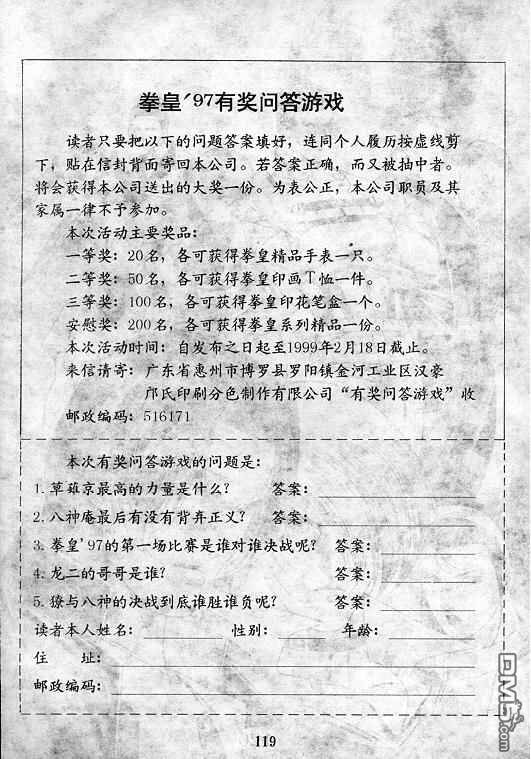 拳皇'97有奖问答游戏
读者只要把以下的问题答案填好，连同个人履历按虚线剪
下，贴在信封背面寄回本公司。若答案正确，而又被抽中者。
将会获得本公司送出的大奖一份。为表公正，本公司职员及其
家属一律不予参加。
本次活动主要奖品：
一等奖：20名，各可获得拳皇精品手表一只。
二等奖：50名，各可获得拳皇印画T恤一件。
三等奖：100名，各可获得拳皇印花笔盒一个。
安慰奖：200名，各可获得拳皇系列精品一份。
本次活动时间：自发布之日起至1999年2月18日截止。
来信请寄：广东省惠州市博罗县罗阳镇金河工业区汉豪
邝氏印刷分色制作有限公司“有奖问答游戏”收
邮政编码：516171
本次有奖问答游戏的问题是：
1.草薙京最高的力量是什么？ 答案：
2.八神庵最后有没有背弃正义？ 答案：
3.拳皇'97的第一场比赛是谁对谁决战呢？ 答案：
4.龙二的哥哥是谁？ 答案：
5.獠与八神的决战到底谁胜谁负呢？ 答案：
读者本人姓名： 性别： 年龄：
住 址：
邮政编码：
119
DM5.com